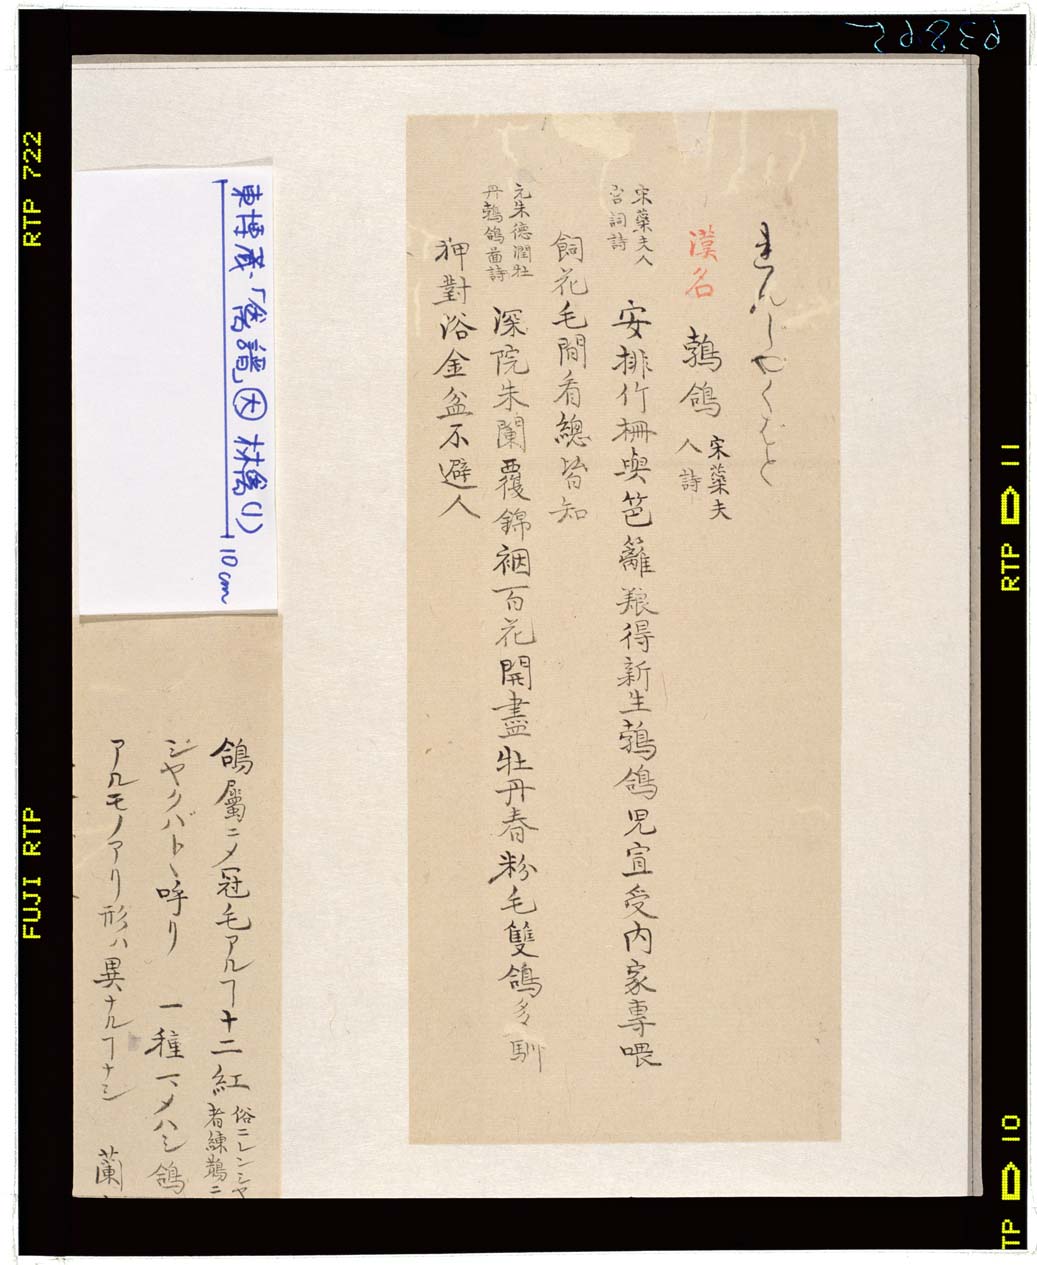 れんじやくばと
漢名 鵓鴿 宋蘂夫人詩
宋蘂夫人
宮詞詩
安排竹柵與笆籬養得新生鵓鴿児宣受内家專喂
飼花毛閒看總皆知
元朱德潤牡
丹鵓鴿啚詩
深院朱闌覆錦裀百花開盡牡丹春粉毛雙鴿多馴
狎對浴金盆不避人
鴿屬ニメ冠毛アルヿ十二紅
俗ニレンシヤ
者練鵲ニ
ジヤクバト丶呼リ 一種マメハシ鴿
アルモノアリ形ハ異ナルヿナシ 蘭
東博蔵「禽譜」大 林禽(1)
10cm
RTP 722
FUJI RTP
RTP 11
RTP 10